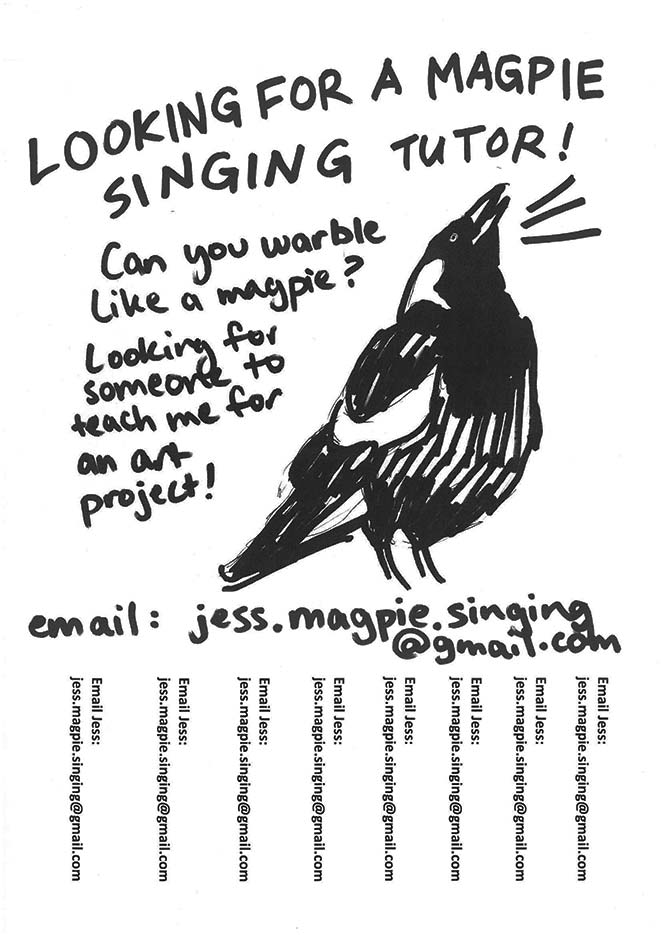 LOOKING FOR A MAGPIE
SINGING TUTOR!
Can you warble
like a magpie?
Looking for
someone to
teach me for
an art
project!
email: jess.magpie.singing
@gmail.com
Email Jess:
jess.magpie.singing@gmail.com
Email Jess:
jess.magpie.singing@gmail.com
Email Jess:
jess.magpie.singing@gmail.com
Email Jess:
jess.magpie.singing@gmail.com
Email Jess:
jess.magpie.singing@gmail.com
Email Jess:
jess.magpie.singing@gmail.com
Email Jess:
jess.magpie.singing@gmail.com
Email Jess:
jess.magpie.singing@gmail.com